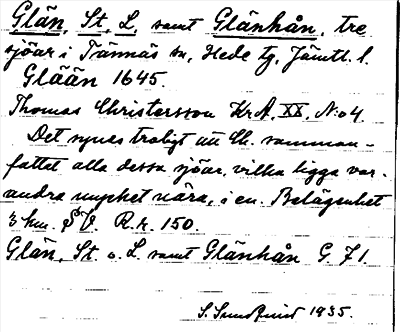 Glän, St, L, samt Glänhån, tre
sjöar i Tännäs sn, Hede tg, Jämtl. l.
Glään 1645.
Thomas Christersson KrA, XX, No 4.
Det synes troligt att Ch. samman-
fattat alla dessa sjöar, vilka ligga var-
andra mycket nära, i en. Belägenhet
3 km. SV. R.k. 150.
Glän, St. o. L. samt Glänhån G. 71.
S. Sundquist 1935.